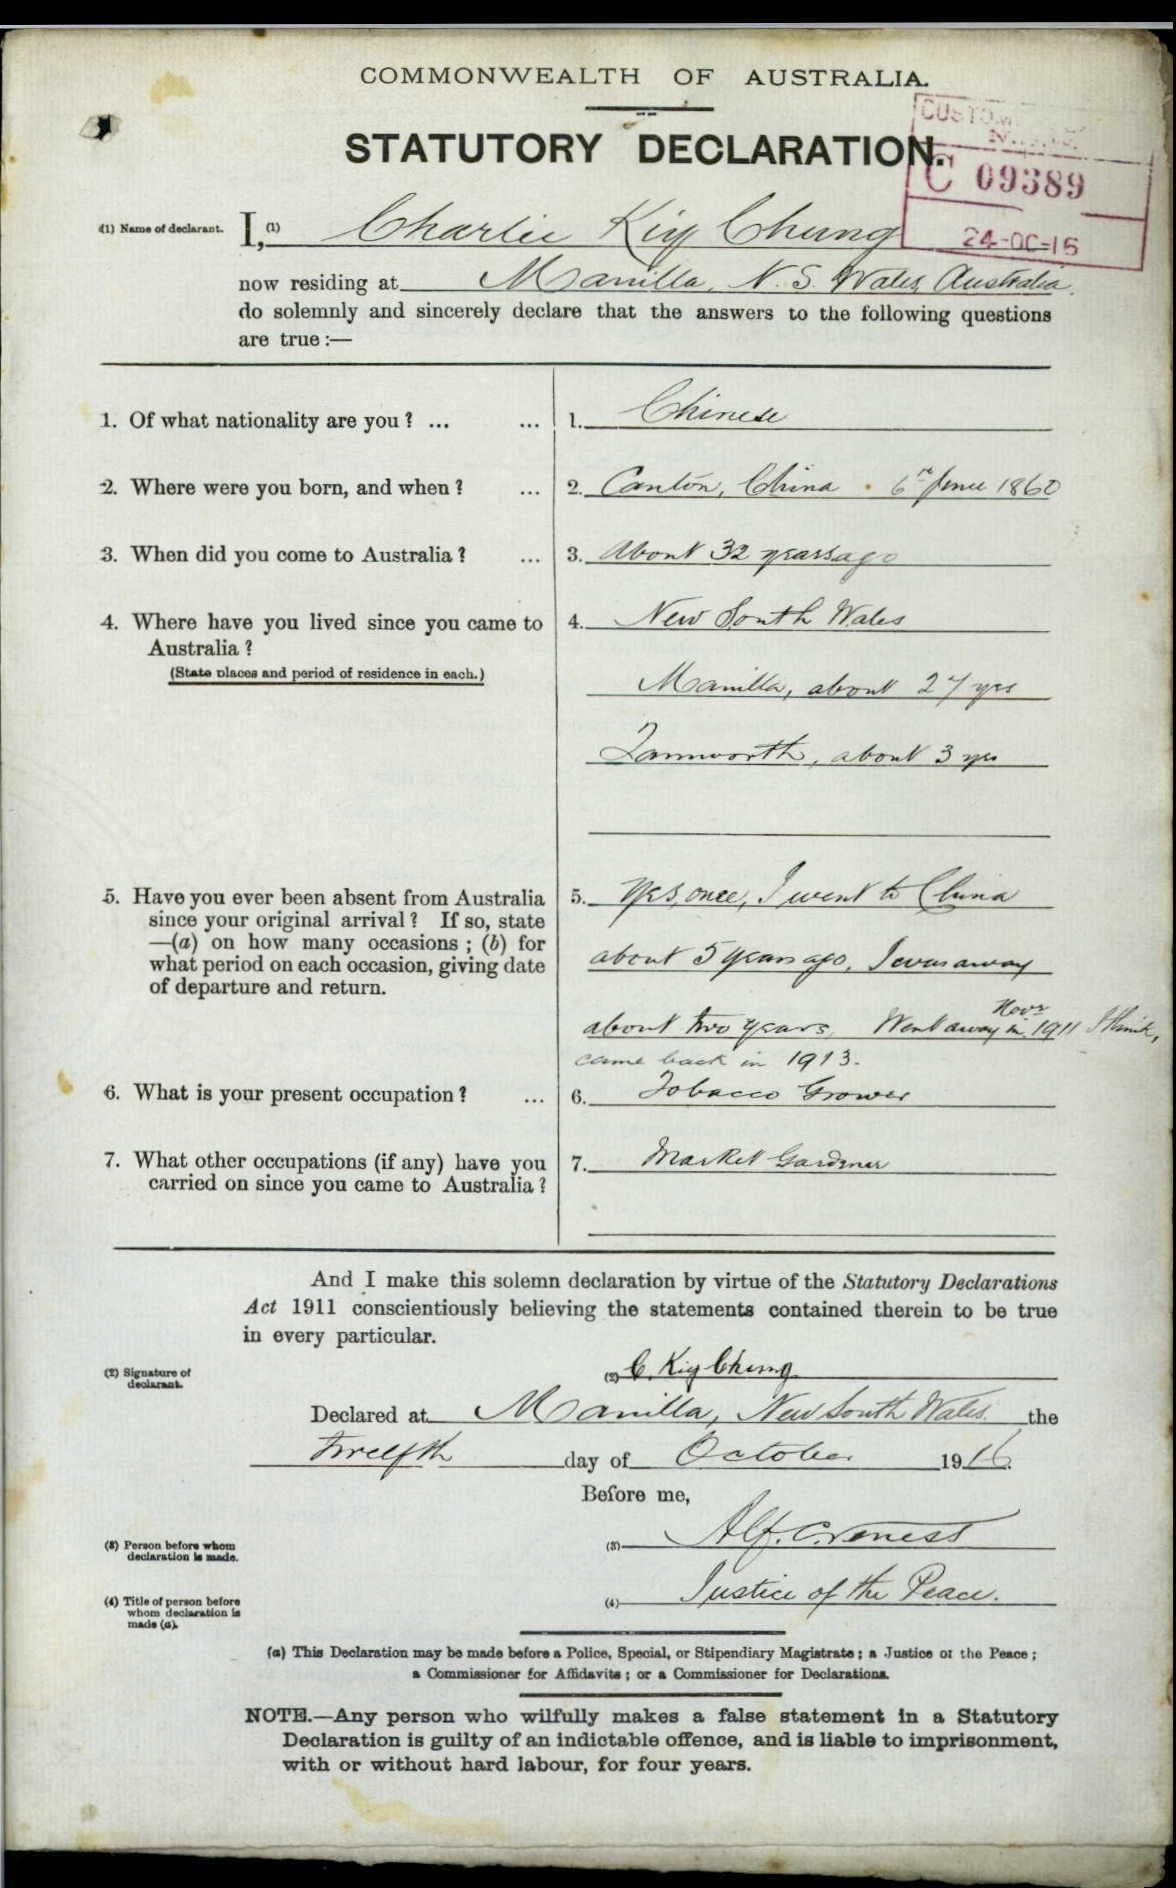 COMMONWEALTH OF AUSTRALIA.
STATUTORY DECLARATION.
CUSTOMS
C 09389
24-OC-16
(1) Name of declarant. I, (1) Charlie Kiy Chung
now residing at Manilla, N. S. Wales, Australia.
do solemnly and sincerely declare that the answers to the following questions
are true :—
1. Of what nationality are you ? ... ... 1. Chinese
2. Where were you born, and when ? ... 2. Canton, China . 6th June 1860
3. When did you come to Australia ? ... 3. About 32 years ago
4. Where have you lived since you came to 4. New South Wales
Australia ?
(State places and period of residence in each.)
Manilla, about 27 yrs
Tamworth, about 3 yrs
5. Have you ever been absent from Australia 5. Yes, once, I went to China
since your original arrival ? If so, state
—(a) on how many occasions ; (b) for about 5 years ago, I was away
what period on each occasion, giving date
of departure and return.
about two years, Went away in Novr 1911 I think,
came back in 1913.
6. What is your present occupation ? ... 6. Tobacco Grower
7. What other occupations (if any) have you 7. Market Gardener
carried on since you came to Australia ?
And I make this solemn declaration by virtue of the Statutory Declarations
Act 1911 conscientiously believing the statements contained therein to be true
in every particular.
(2) Signature of declarant. (2) C. Kiy Chung
Declared at Manilla, New South Wales. the
twelfth day of October 1916.
Before me,
(3) Person before whom declaration is made. (3) Alf. C. Veness
(4) Title of person before whom declaration is made (a). (4) Justice of the Peace.
(a) This Declaration may be made before a Police, Special, or Stipendiary Magistrate ; a Justice of the Peace ;
a Commissioner for Affidavits ; or a Commissioner for Declarations.
NOTE.—Any person who wilfully makes a false statement in a Statutory
Declaration is guilty of an indictable offence, and is liable to imprisonment,
with or without hard labour, for four years.